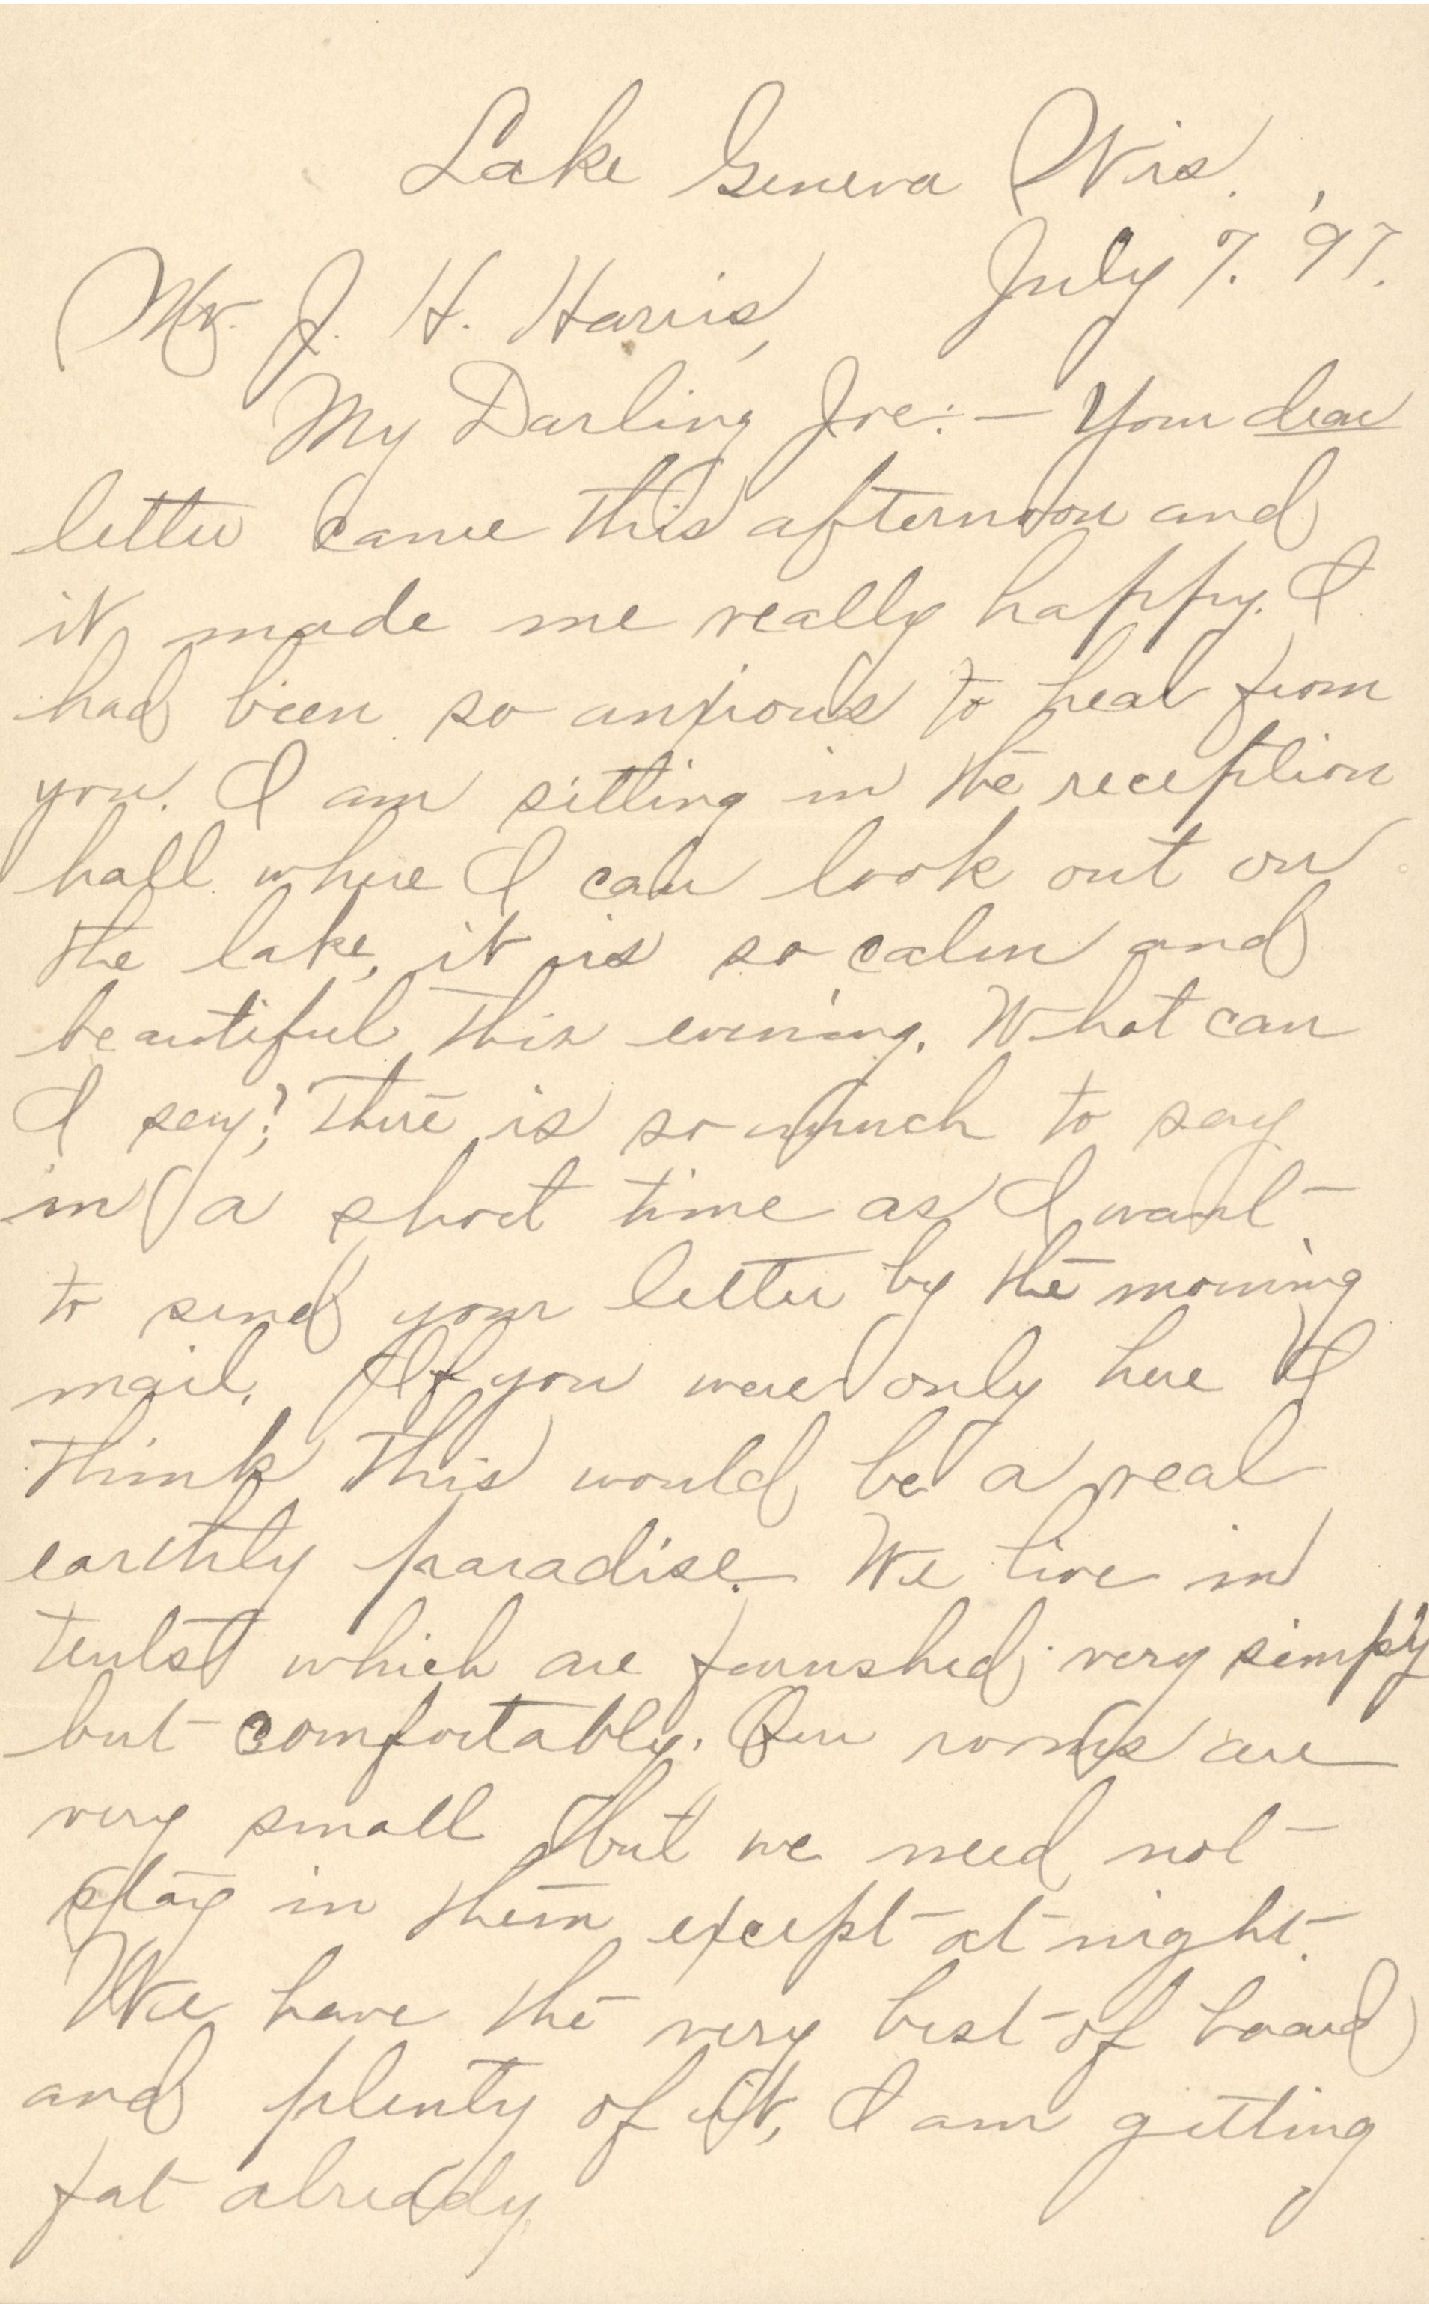 Lake Geneva Wis.,
July 7. '97.
Mr. J. H. Harris,
My Darling Joe:— Your dear
letter came this afternoon and
it made me really happy. I
had been so anxious to hear from
you. I am sitting in the reception
hall where I can look out on
the lake, it is so calm and
beautiful this evening. What can
I say? There is so much to say
in a short time as I want
to send your letter by the morning
mail. If you were only here I
think this would be a real
earthly paradise. We live in
tents which are furnished very simply
but comfortably. Our rooms are
very small but we need not
stay in them except at night.
We have the very best of board
and plenty of it, I am getting
fat already